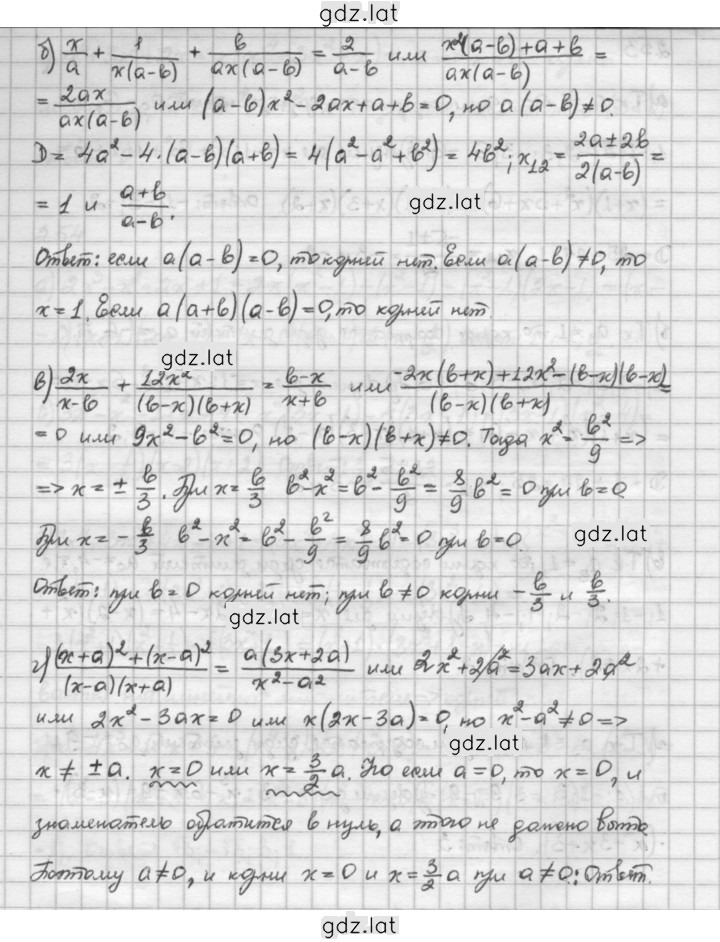 gdz.lat
б) x/a + 1/(x(a-b)) + b/(ax(a-b)) = 2/(a-b) или (x²(a-b)+a+b)/(ax(a-b)) =
= 2ax/(ax(a-b)) или (a-b)x² - 2ax + a + b = 0, но a(a-b) ≠ 0.
D = 4a² - 4·(a-b)(a+b) = 4(a² - a² + b²) = 4b²; x₁₂ = (2a ± 2b)/(2(a-b)) =
= 1 и (a+b)/(a-b).
gdz.lat
Ответ: если a(a-b) = 0, то корней нет. Если a(a-b) ≠ 0, то
x = 1. Если a(a+b)(a-b) = 0, то корней нет.
gdz.lat
в) 2x/(x-b) + 12x²/((b-x)(b+x)) = (b-x)/(x+b) или (-2x(b+x) + 12x² - (b-x)(b-x))/((b-x)(b+x)) =
= 0 или 9x² - b² = 0, но (b-x)(b+x) ≠ 0. Тогда x² = b²/9 =>
=> x = ± b/3. При x = b/3 b² - x² = b² - b²/9 = 8/9 b² = 0 при b = 0
При x = - b/3 b² - x² = b² - b²/9 = 8/9 b² = 0 при b = 0
gdz.lat
Ответ: при b = 0 корней нет; при b ≠ 0 корни - b/3 и b/3.
gdz.lat
г) ((x+a)² + (x-a)²)/((x-a)(x+a)) = a(3x+2a)/(x²-a²) или 2x² + 2a² = 3ax + 2a²
или 2x² - 3ax = 0 или x(2x-3a) = 0, но x² - a² ≠ 0 =>
gdz.lat
x ≠ ± a. x = 0 или x = 3/2 a. Но если a = 0, то x = 0, и
знаменатель обратится в нуль, а этого не должно быть.
Поэтому a ≠ 0, и корни x = 0 и x = 3/2 a при a ≠ 0: Ответ.
gdz.lat